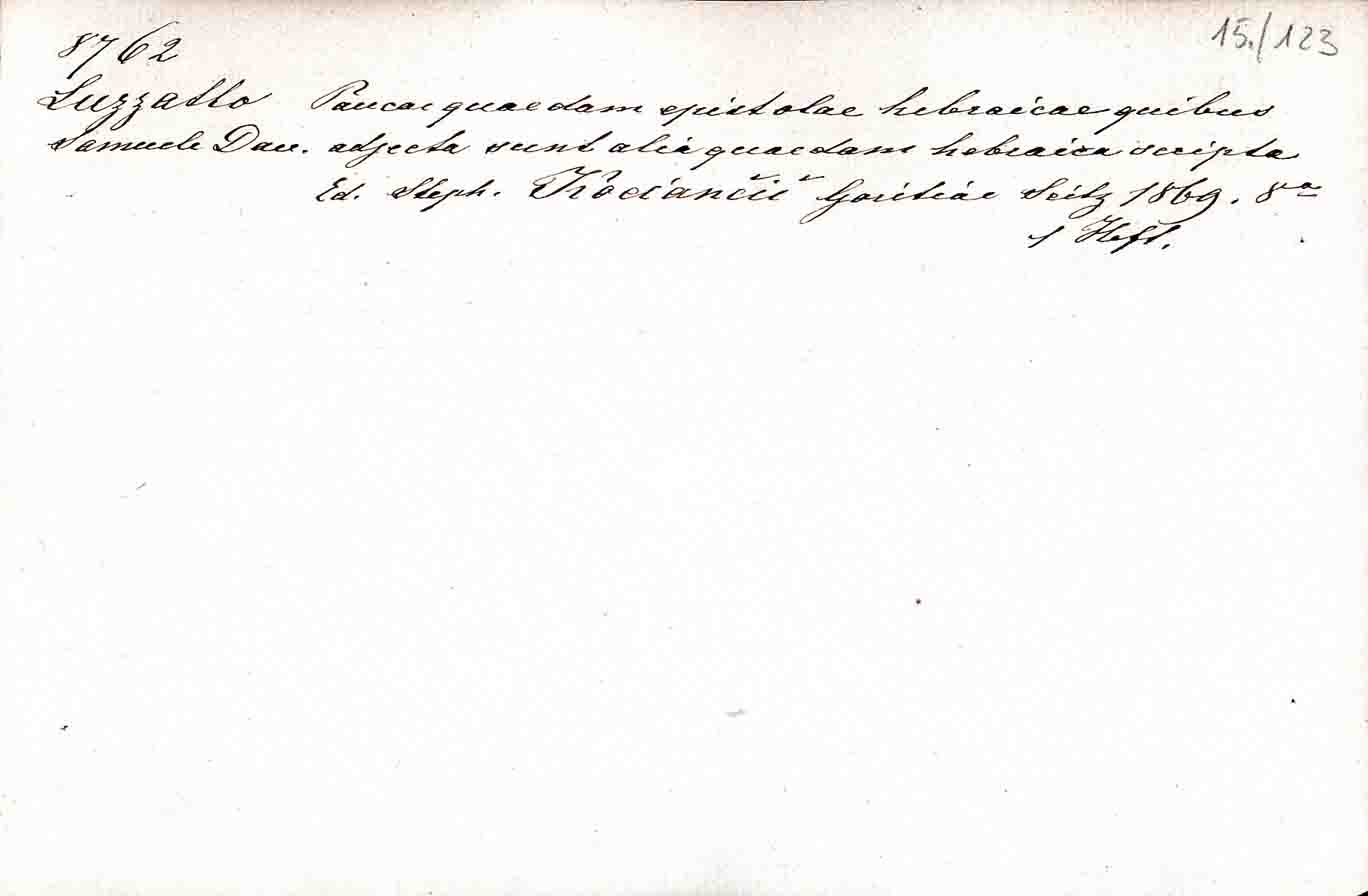 15./123
8762
Luzzatto Paucae quaedam epistolae hebraicae quibus
Samuele Dav. adjecta sunt alia quaedam hebraica scripta
Ed. Steph. Kociančič Goritiae Seitz 1869. 8º
1 Heft.